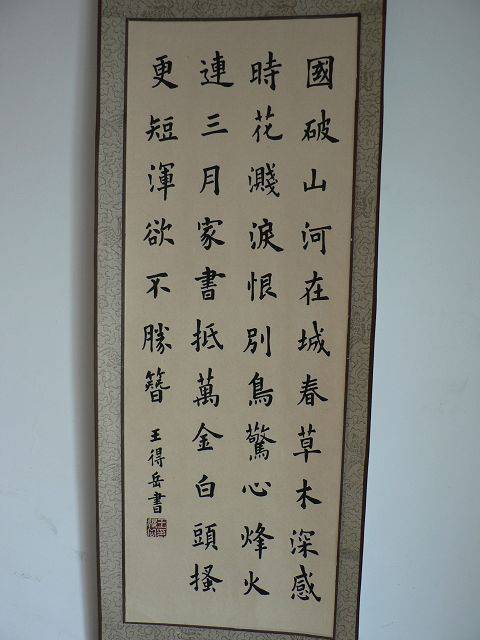 國破山河在城春草木深感
時花濺淚恨別鳥驚心烽火
連三月家書抵萬金白頭搔
更短渾欲不勝簪
王得岳書